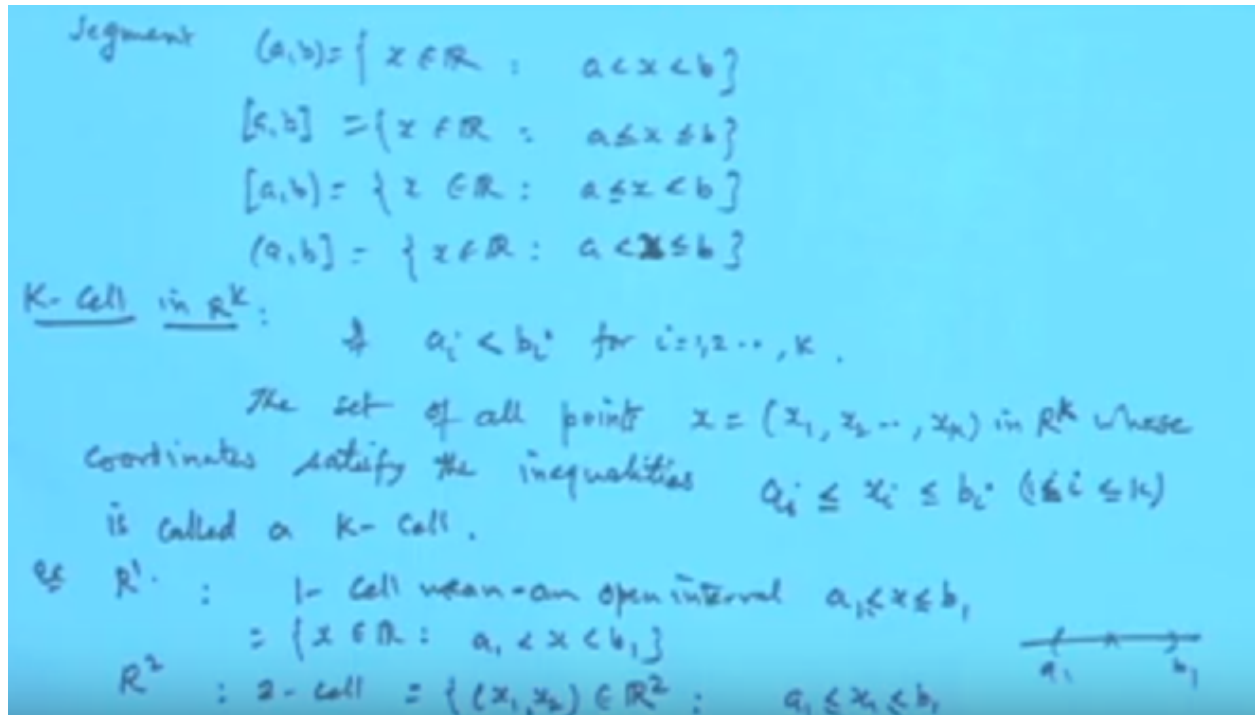 Segment (a,b) = { x ∈ ℝ : a < x < b }
[a,b] = { x ∈ ℝ : a ≤ x ≤ b }
[a,b) = { x ∈ ℝ : a ≤ x < b }
(a,b] = { x ∈ ℝ : a < x ≤ b }
K-Cell in R^k :
If a_i < b_i for i=1,2..,k.
The set of all points x = (x_1, x_2 .., x_k) in R^k whose
coordinates satisfy the inequalities a_i ≤ x_i ≤ b_i (1≤i≤k)
is called a K-Cell.
R^1 : 1-Cell mean - an open interval a_1 ≤ x ≤ b_1
= { x ∈ ℝ : a_1 < x < b_1 }
a_1 b_1
R^2 : 2-cell = { (x_1, x_2) ∈ ℝ^2 : a_1 ≤ x_1 ≤ b_1